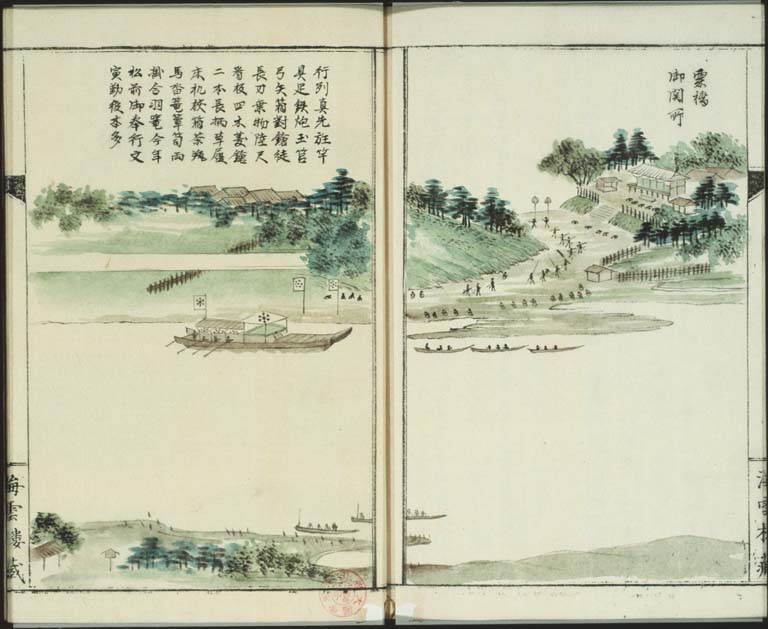 栗橋
御関所
行列真先旌竿
具足鉄炮玉
弓矢箱對鎗徒
長刀乗物陸尺
看板四本菱鎗
二本長柄草履
床机挟箱茶瓶
馬沓篭簟笥両
掛合羽篭今年
松前御奉行文
寅勤役本多
海雲楼蔵
海雲楼蔵